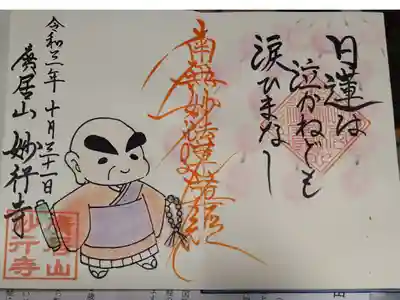 日蓮は
泣かねども
涙ひまなし
南無妙法蓮華経
令和三年 十月三十一日
妙行寺
妙行寺